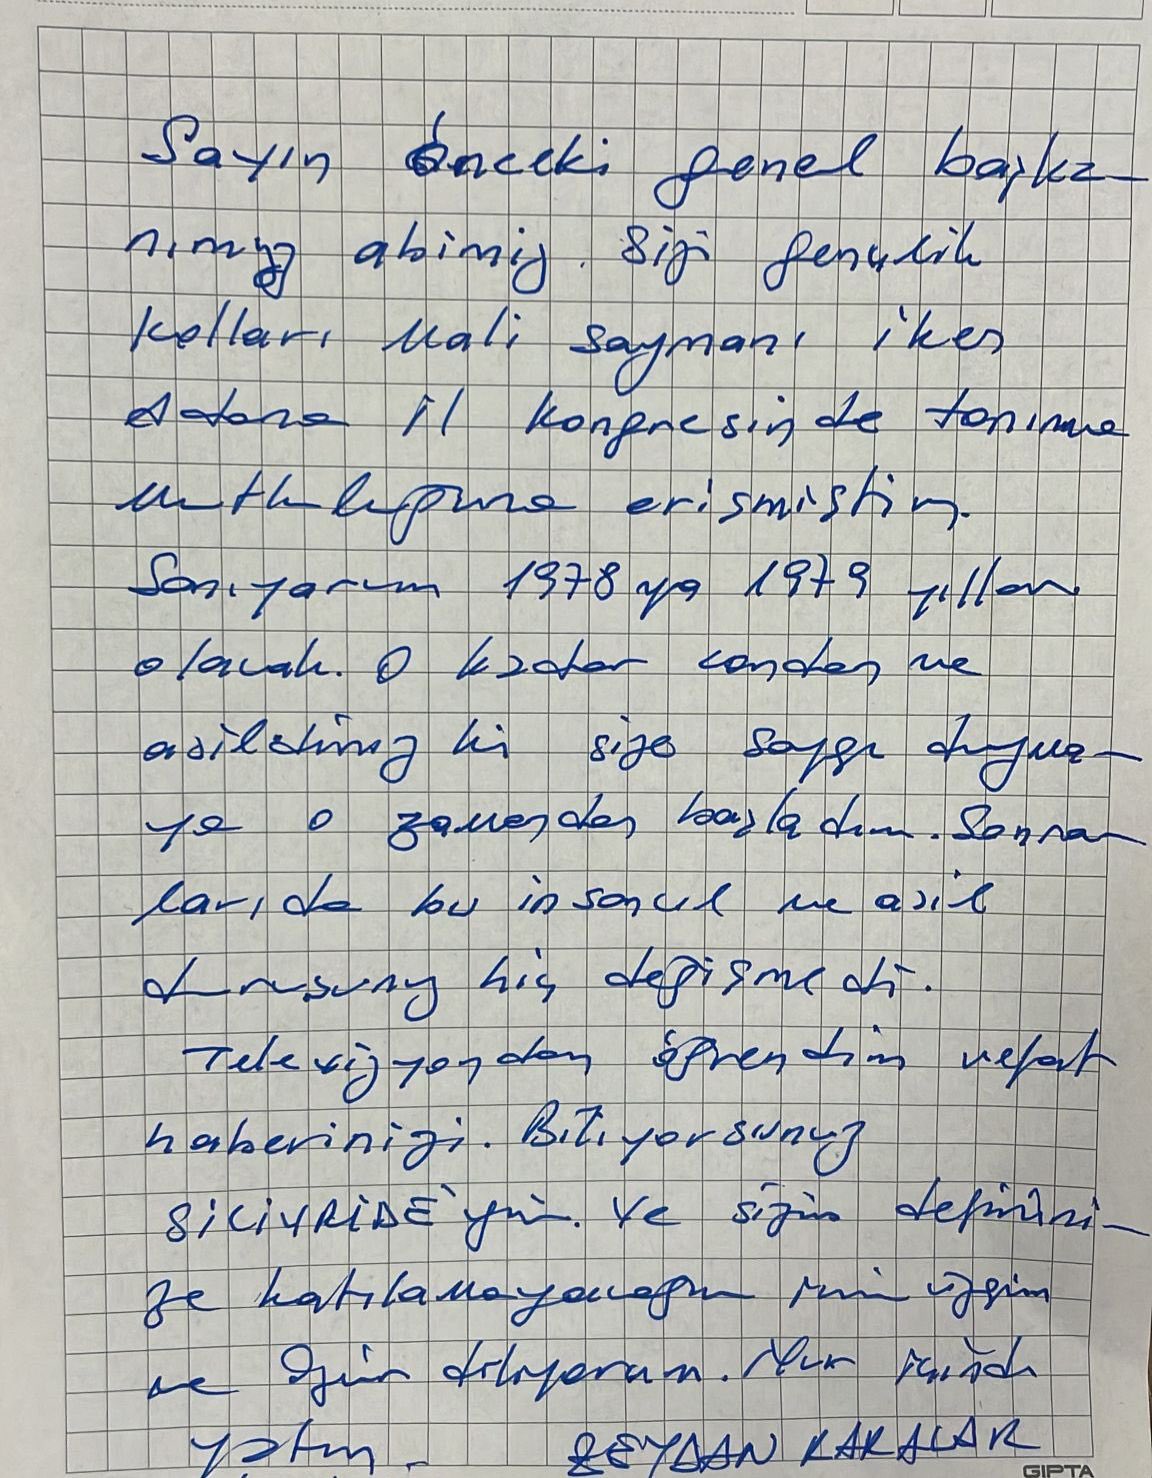 Sayın önceki genel başka-
nımız abimiz. Sizi gençlik
kolları Mali saymanı iken
Adana il kongresinde tanıma
mutluluğuna erişmiştim.
Sanıyorum 1978 ya 1979 yılları
olacak. O kadar candan ve
asildiniz ki size saygı duyma-
ya o zamandan başladım. Sonra-
ları da bu insancıl ve asil
duruşunuz hiç değişmedi.
Televizyondan öğrendim vefat
haberinizi. Biliyorsunuz
SİLİVRİDE'yim. Ve sizin defnini-
ze katılamayacağım için üzgün
ve özür diliyorum. Nur içinde
yatın. ZEYDAN KARALAR
GIPTA